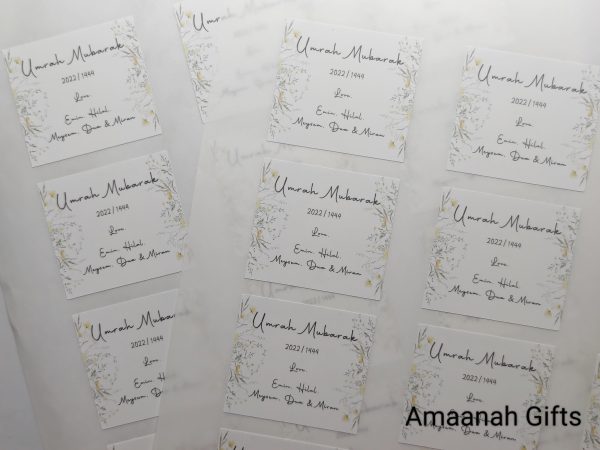 Umrah Mubarak
2022 / 1444
Love
Emir, Hilal,
Maysam, Dua & Miran
Umrah Mubarak
2022 / 1444
Love
Emir, Hilal,
Maysam, Dua & Miran
Umrah Mubarak
2022 / 1444
Love
Emir, Hilal,
Maysam, Dua & Miran
Umrah Mubarak
2022 / 1444
Love
Emir, Hilal,
Maysam, Dua & Miran
Umrah Mubarak
2022 / 1444
Love
Emir, Hilal,
Maysam, Dua & Miran
Umrah Mubarak
2022 / 1444
Love
Emir, Hilal,
Maysam, Dua & Miran
Umrah Mubarak
2022 / 1444
Love
Maysam, Dua &
Umrah Mubarak
2022 / 1444
Love
Emir, Hilal,
Maysam, Dua & Miran
Umrah Mubarak
2022 / 1444
Love
Emir, Hilal,
Maysam, Dua & Miran
Amaanah Gifts